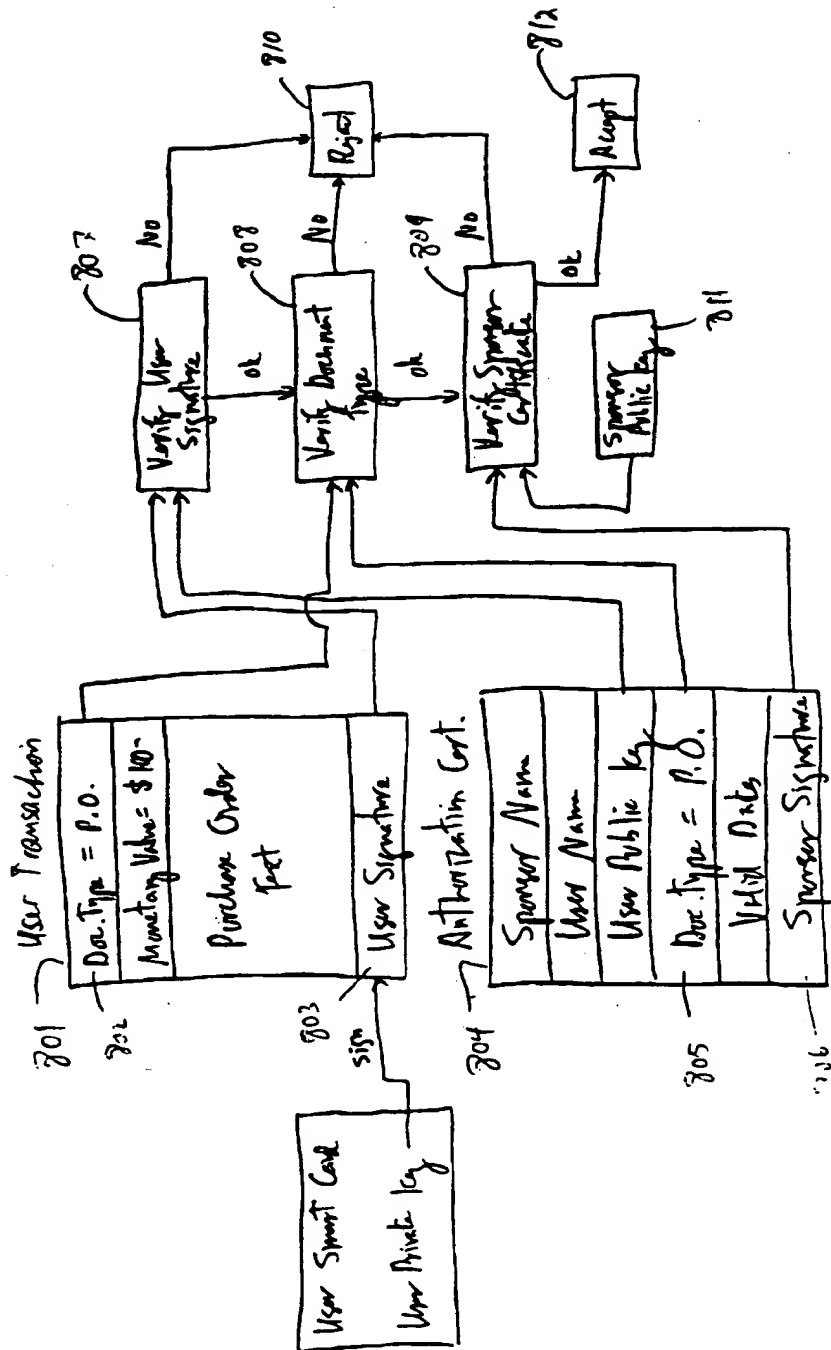 User Smart Card
User Private key
sign
801
User Transaction
802
Doc. Type = P.O.
Monetary Value = $100-
Purchase Order
Text
803
User Signature
804
Authorization Cert.
Sponsor Name
User Name
User Public key
805
Doc. Type = P.O.
Valid Dates
Sponsor Signature
807
Verify User
Signature
No
ok
808
Verify Document
Type
No
ok
809
Verify Sponsor
Certificate
No
ok
810
Reject
811
Sponsor
Public key
812
Accept